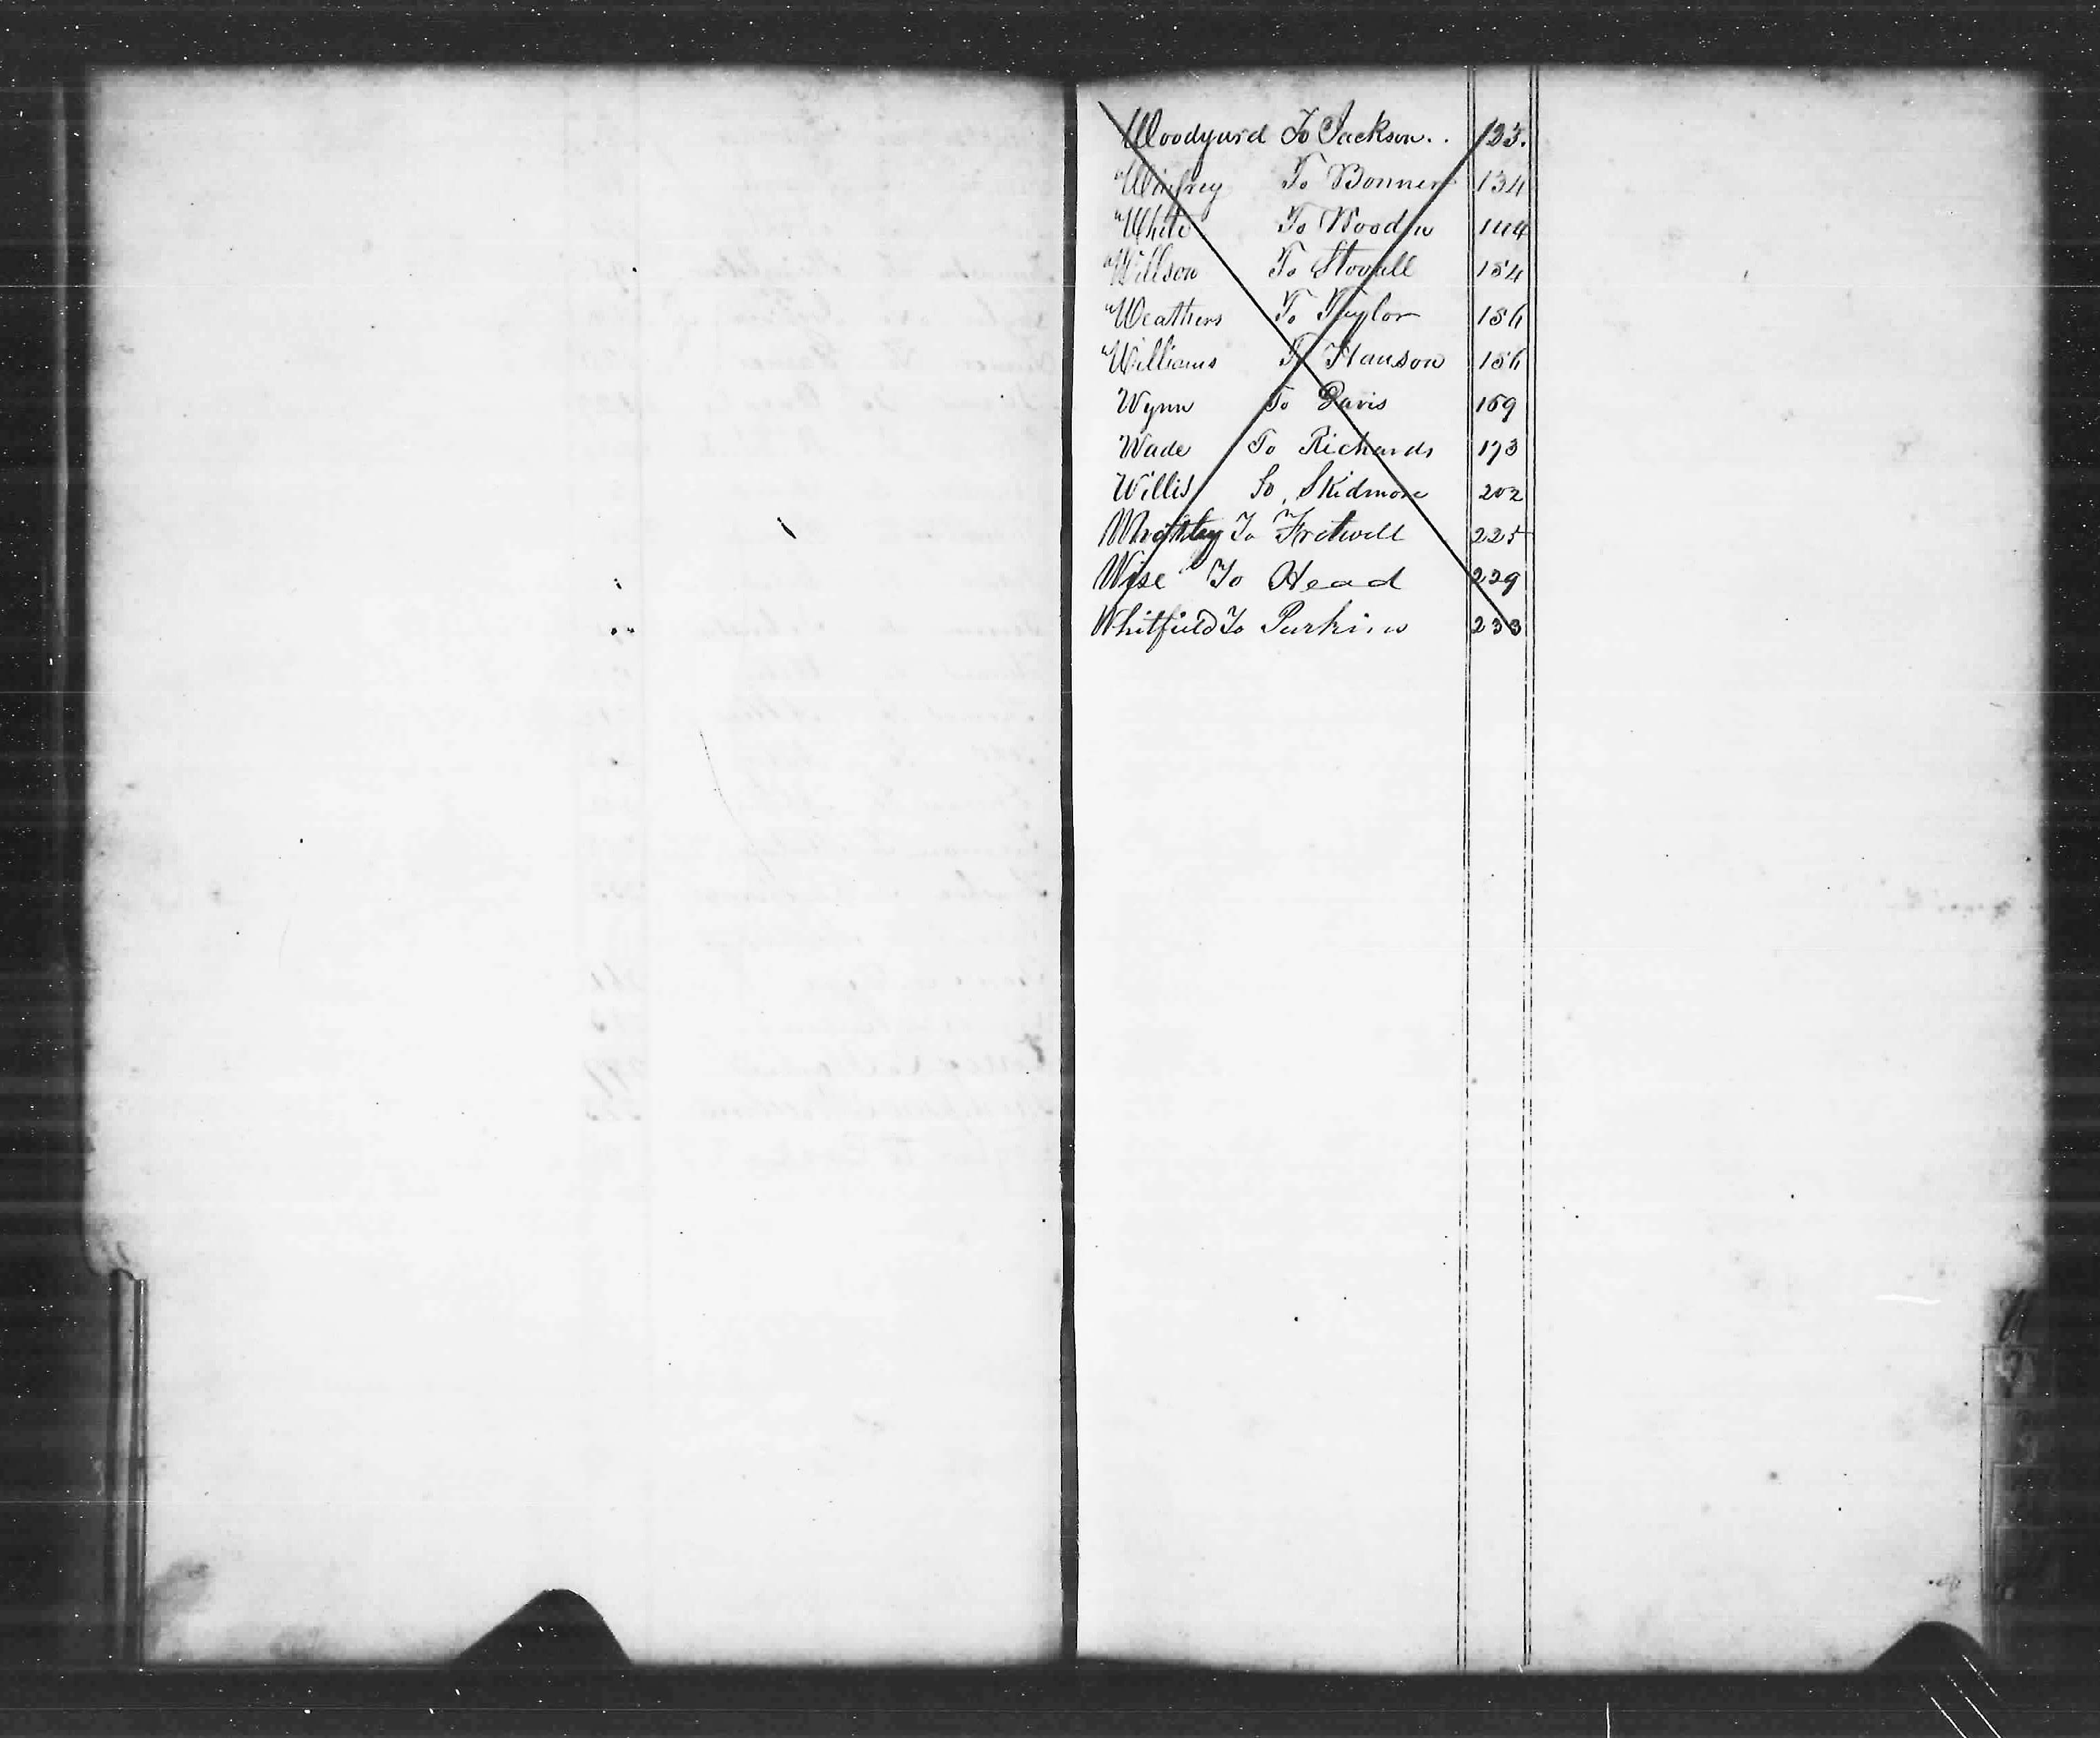 Woodyard To Jackson . . 123.
Winfrey To Bonner 134
White To Wood 144
Willson To Stovall 154
Weathers To Taylor 156
Williams To Hanson 156
Wynn To Davis 169
Wade To Richards 173
Willis To Skidmore 202
To Fretwell 225
Wise To Head 229
Whitfield To Perkins 233